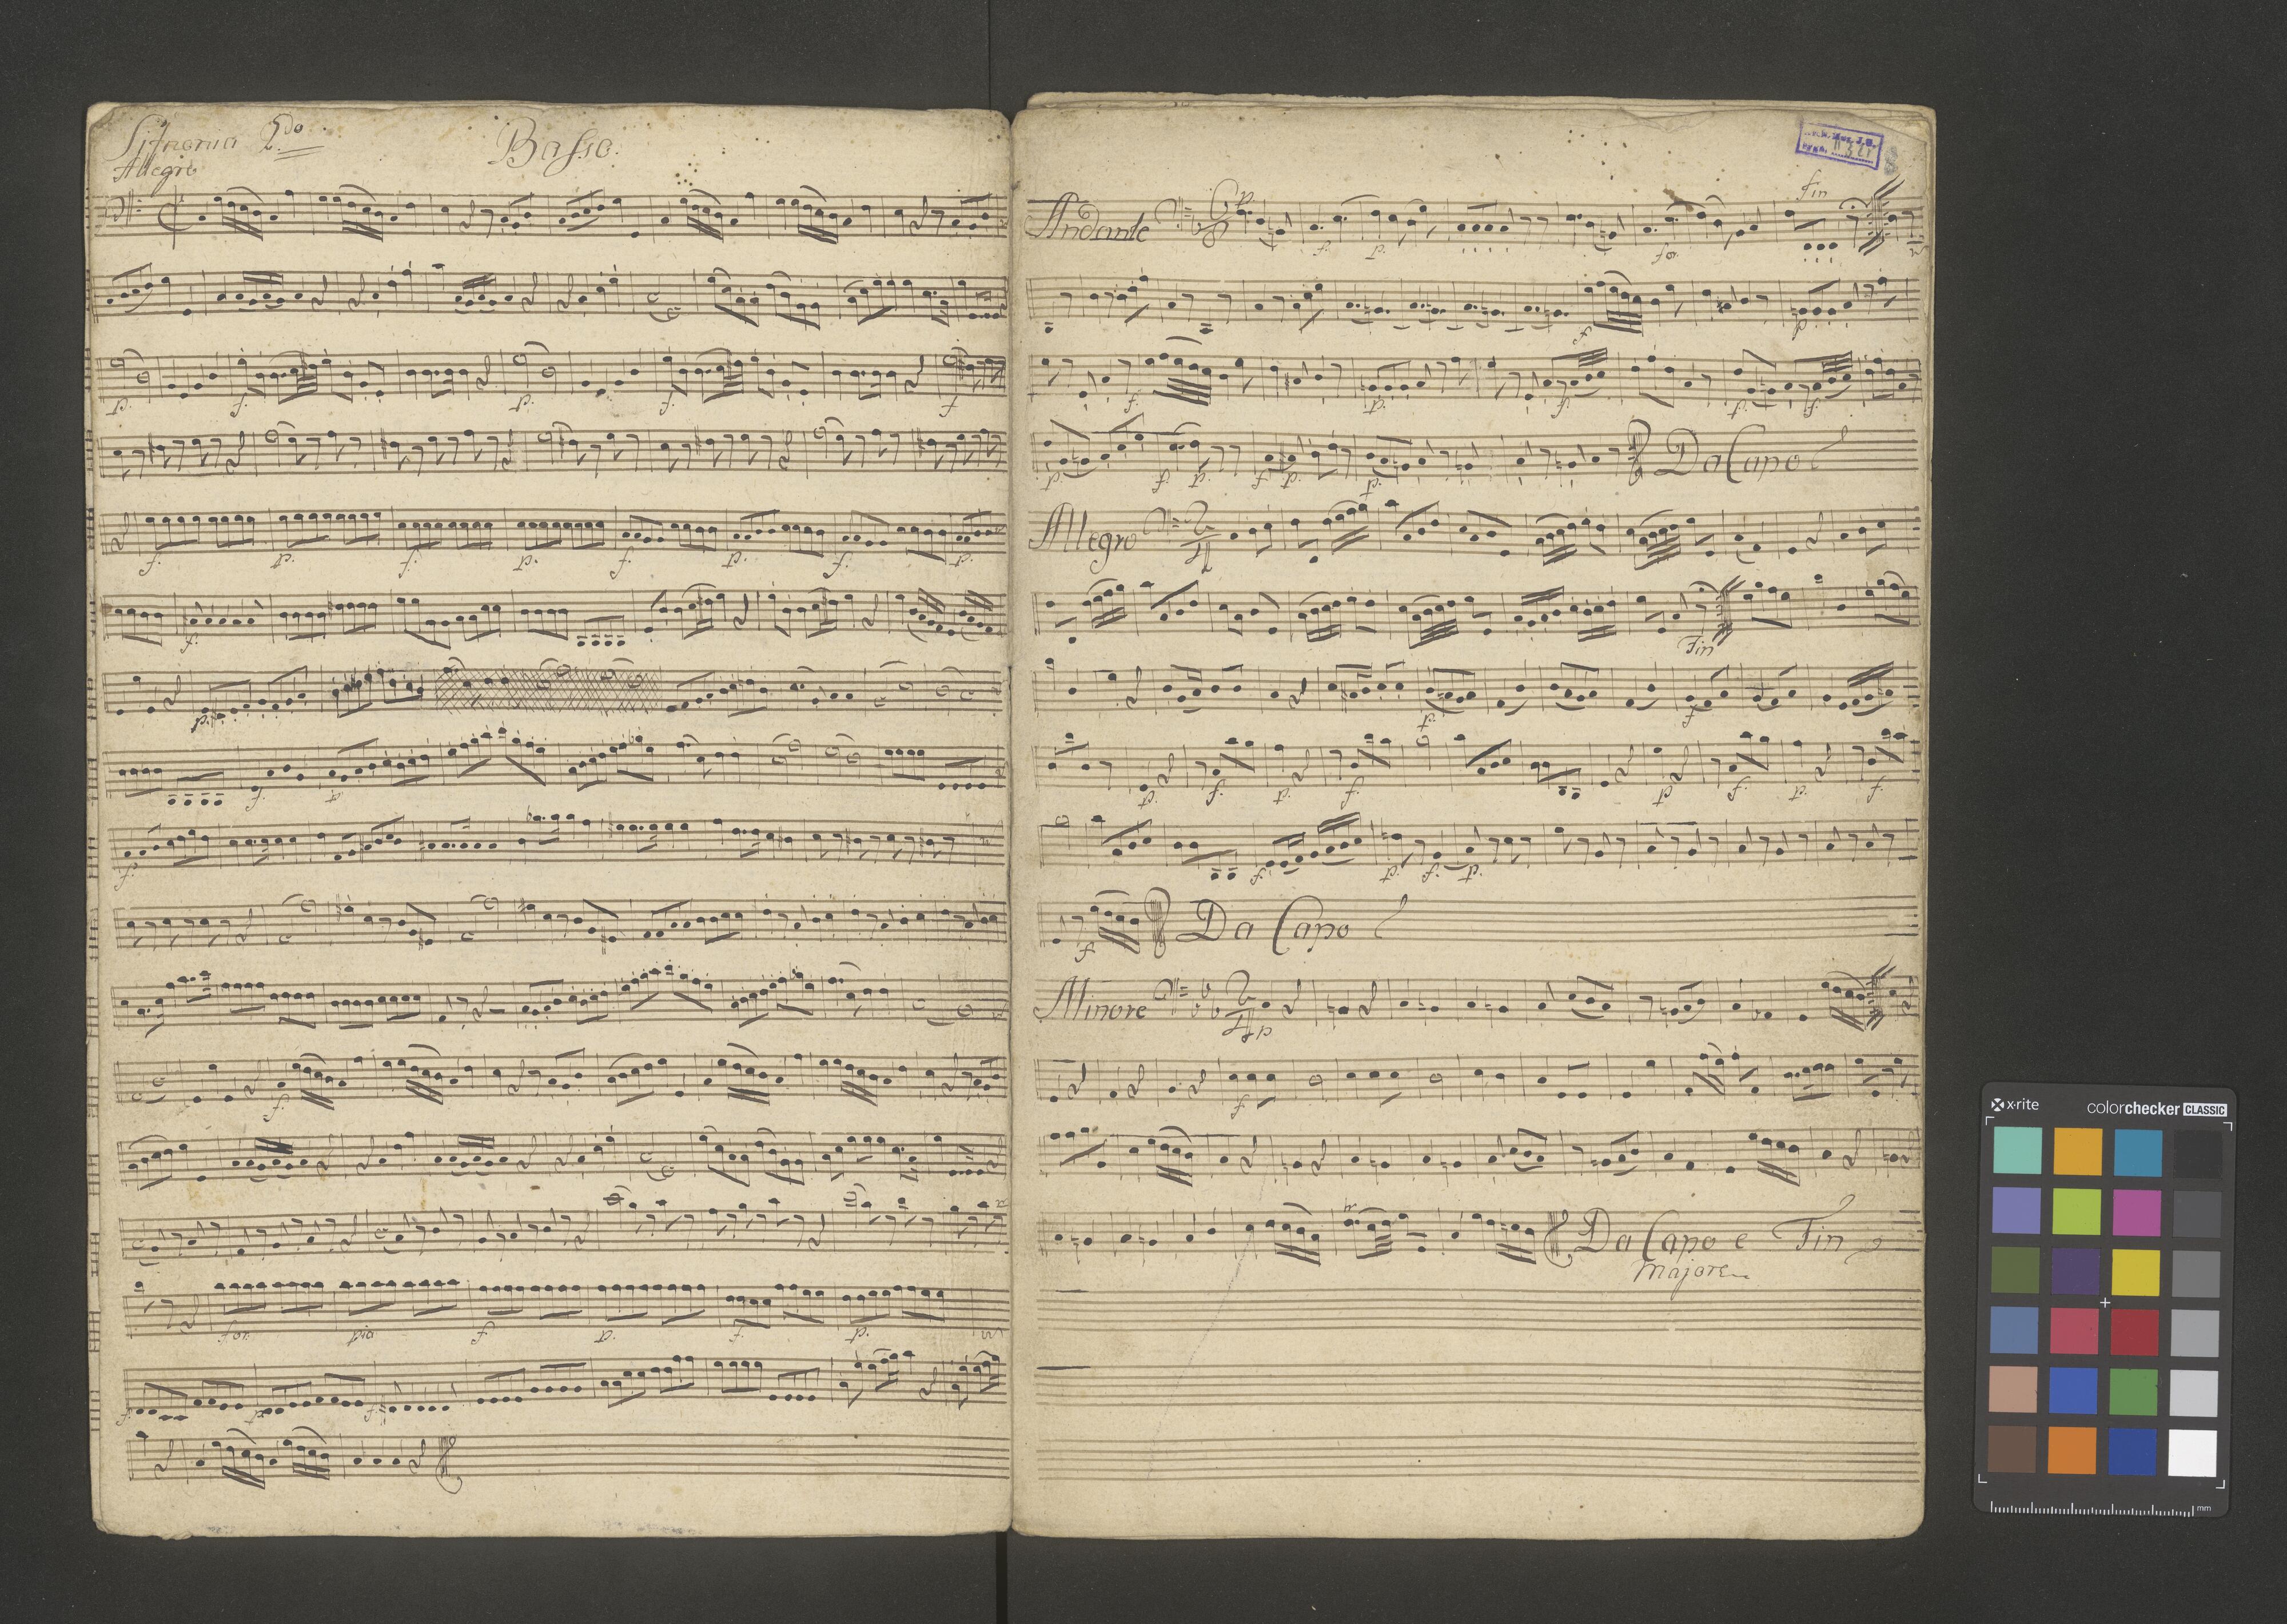 Sifnonia 2do
Basso.
Allegro
f
p
f
p
f
f
f
p
f
p
f
p
f
p
f
p
f
p
f
f
f
for
pia
f
p
f
p
f
p
f
Andante
p
f
p
for
Fin
f
p
f
p
f
p
f
p
f
p
f
p
p
Da Capo
Allegro
2/4
Fin
p
f
p
f
p
f
p
f
p
f
f
p
f
p
f
Da Capo
Minore
2/4
p
f
Da Capo e Fin
Majore
x·rite
colorchecker CLASSIC
mm